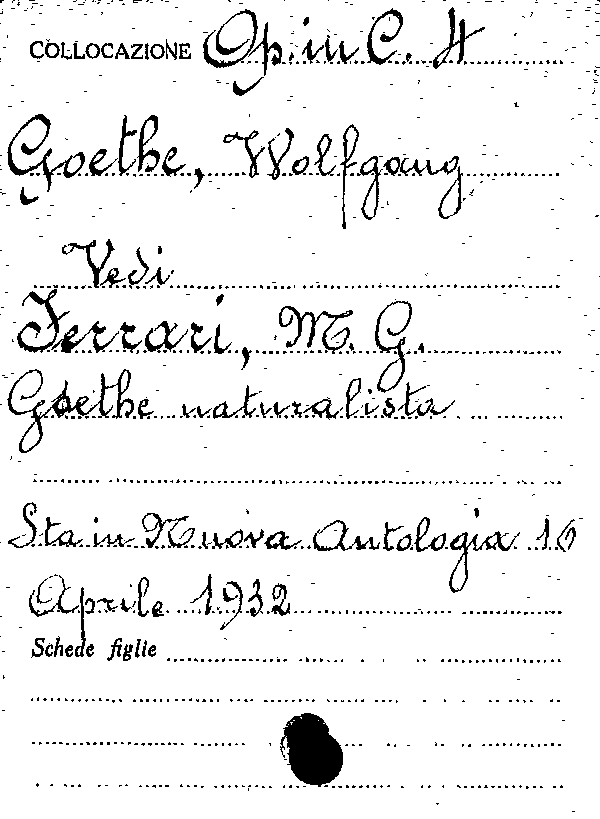 COLLOCAZIONE Op. in C. 4
Goethe, Wolfgang
Vedi
Ferrari, M. G.
Goethe naturalista
Sta in Nuova Antologia 16
Aprile 1932
Schede figlie